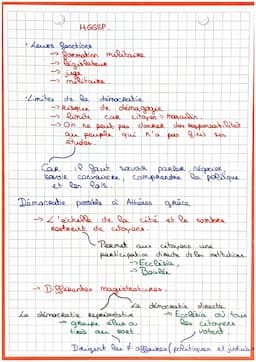 HGGSP.
• Leurs fonctions
→ formation militaire
→ législateur
→ juge
→ militaire.
• Limites de la démocratie
→ Risque de démagogie
→ limite car citoyen = masculin.
→ On ne peut pas donner des responsabilités
au peuple qui n'a pas fini ses
études.
Car il faut savoir parler, négocier,
savoir convaincre, comprendre la politique
et les lois.
Démocratie possible à Athènes grâce
→ L'échelle de la cité et le nombre
restreint de citoyens.
Permet aux citoyens une
participation directe ds les institutions.
→ Ecclésia,
→ Boulée
→ Différentes magistratures.
La démocratie directe
La démocratie représentative
→ Ecclésia où tous
→ groupe élus ou
les citoyens
tirés au sort
votent.
Dirigent les ≠ affaires (politiques et